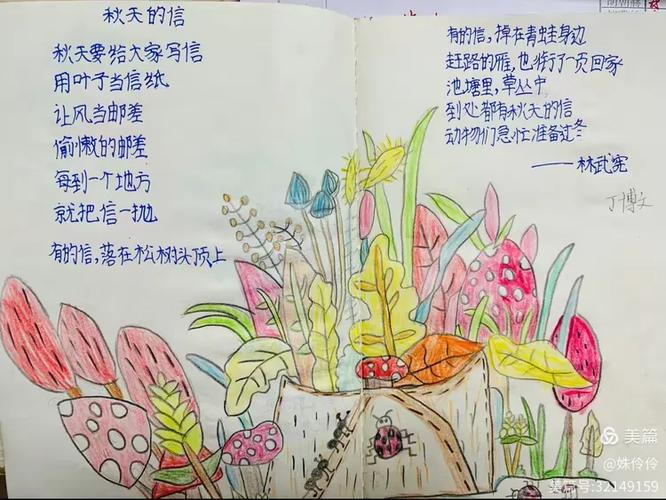 秋天的信
秋天要给大家写信
用叶子当信纸
让风当邮差
偷懒的邮差
每到一个地方
就把信一抛
有的信,落在松树头顶上
有的信,掉在青蛙身边
赶路的雁,也衔了一页回家
池塘里,草丛中
到处都有秋天的信
动物们急忙准备过冬
——林武宪
丁博文
美篇
@姝伶伶
美篇号:32149159